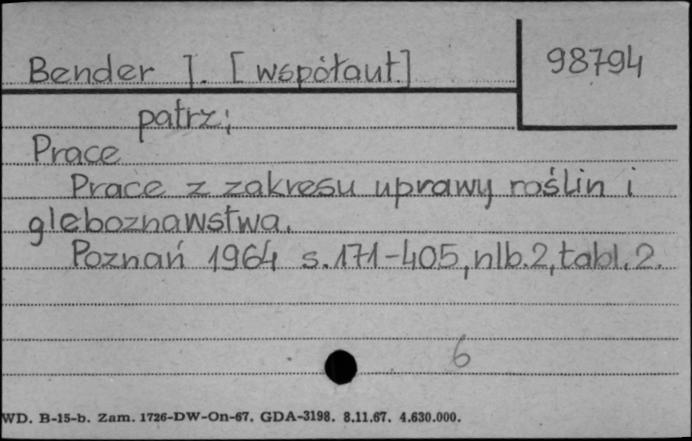 Bender J. [współaut.] 98794
patrz;
Prace
Prace z zakresu uprawy roślin i
gleboznawstwa.
Poznań 1964 s.171-405, nlb.2, tabl.2.
6
WD. B-15-b. Zam. 1726-DW-On-67. GDA-3198. 8.11.67. 4.630.000.